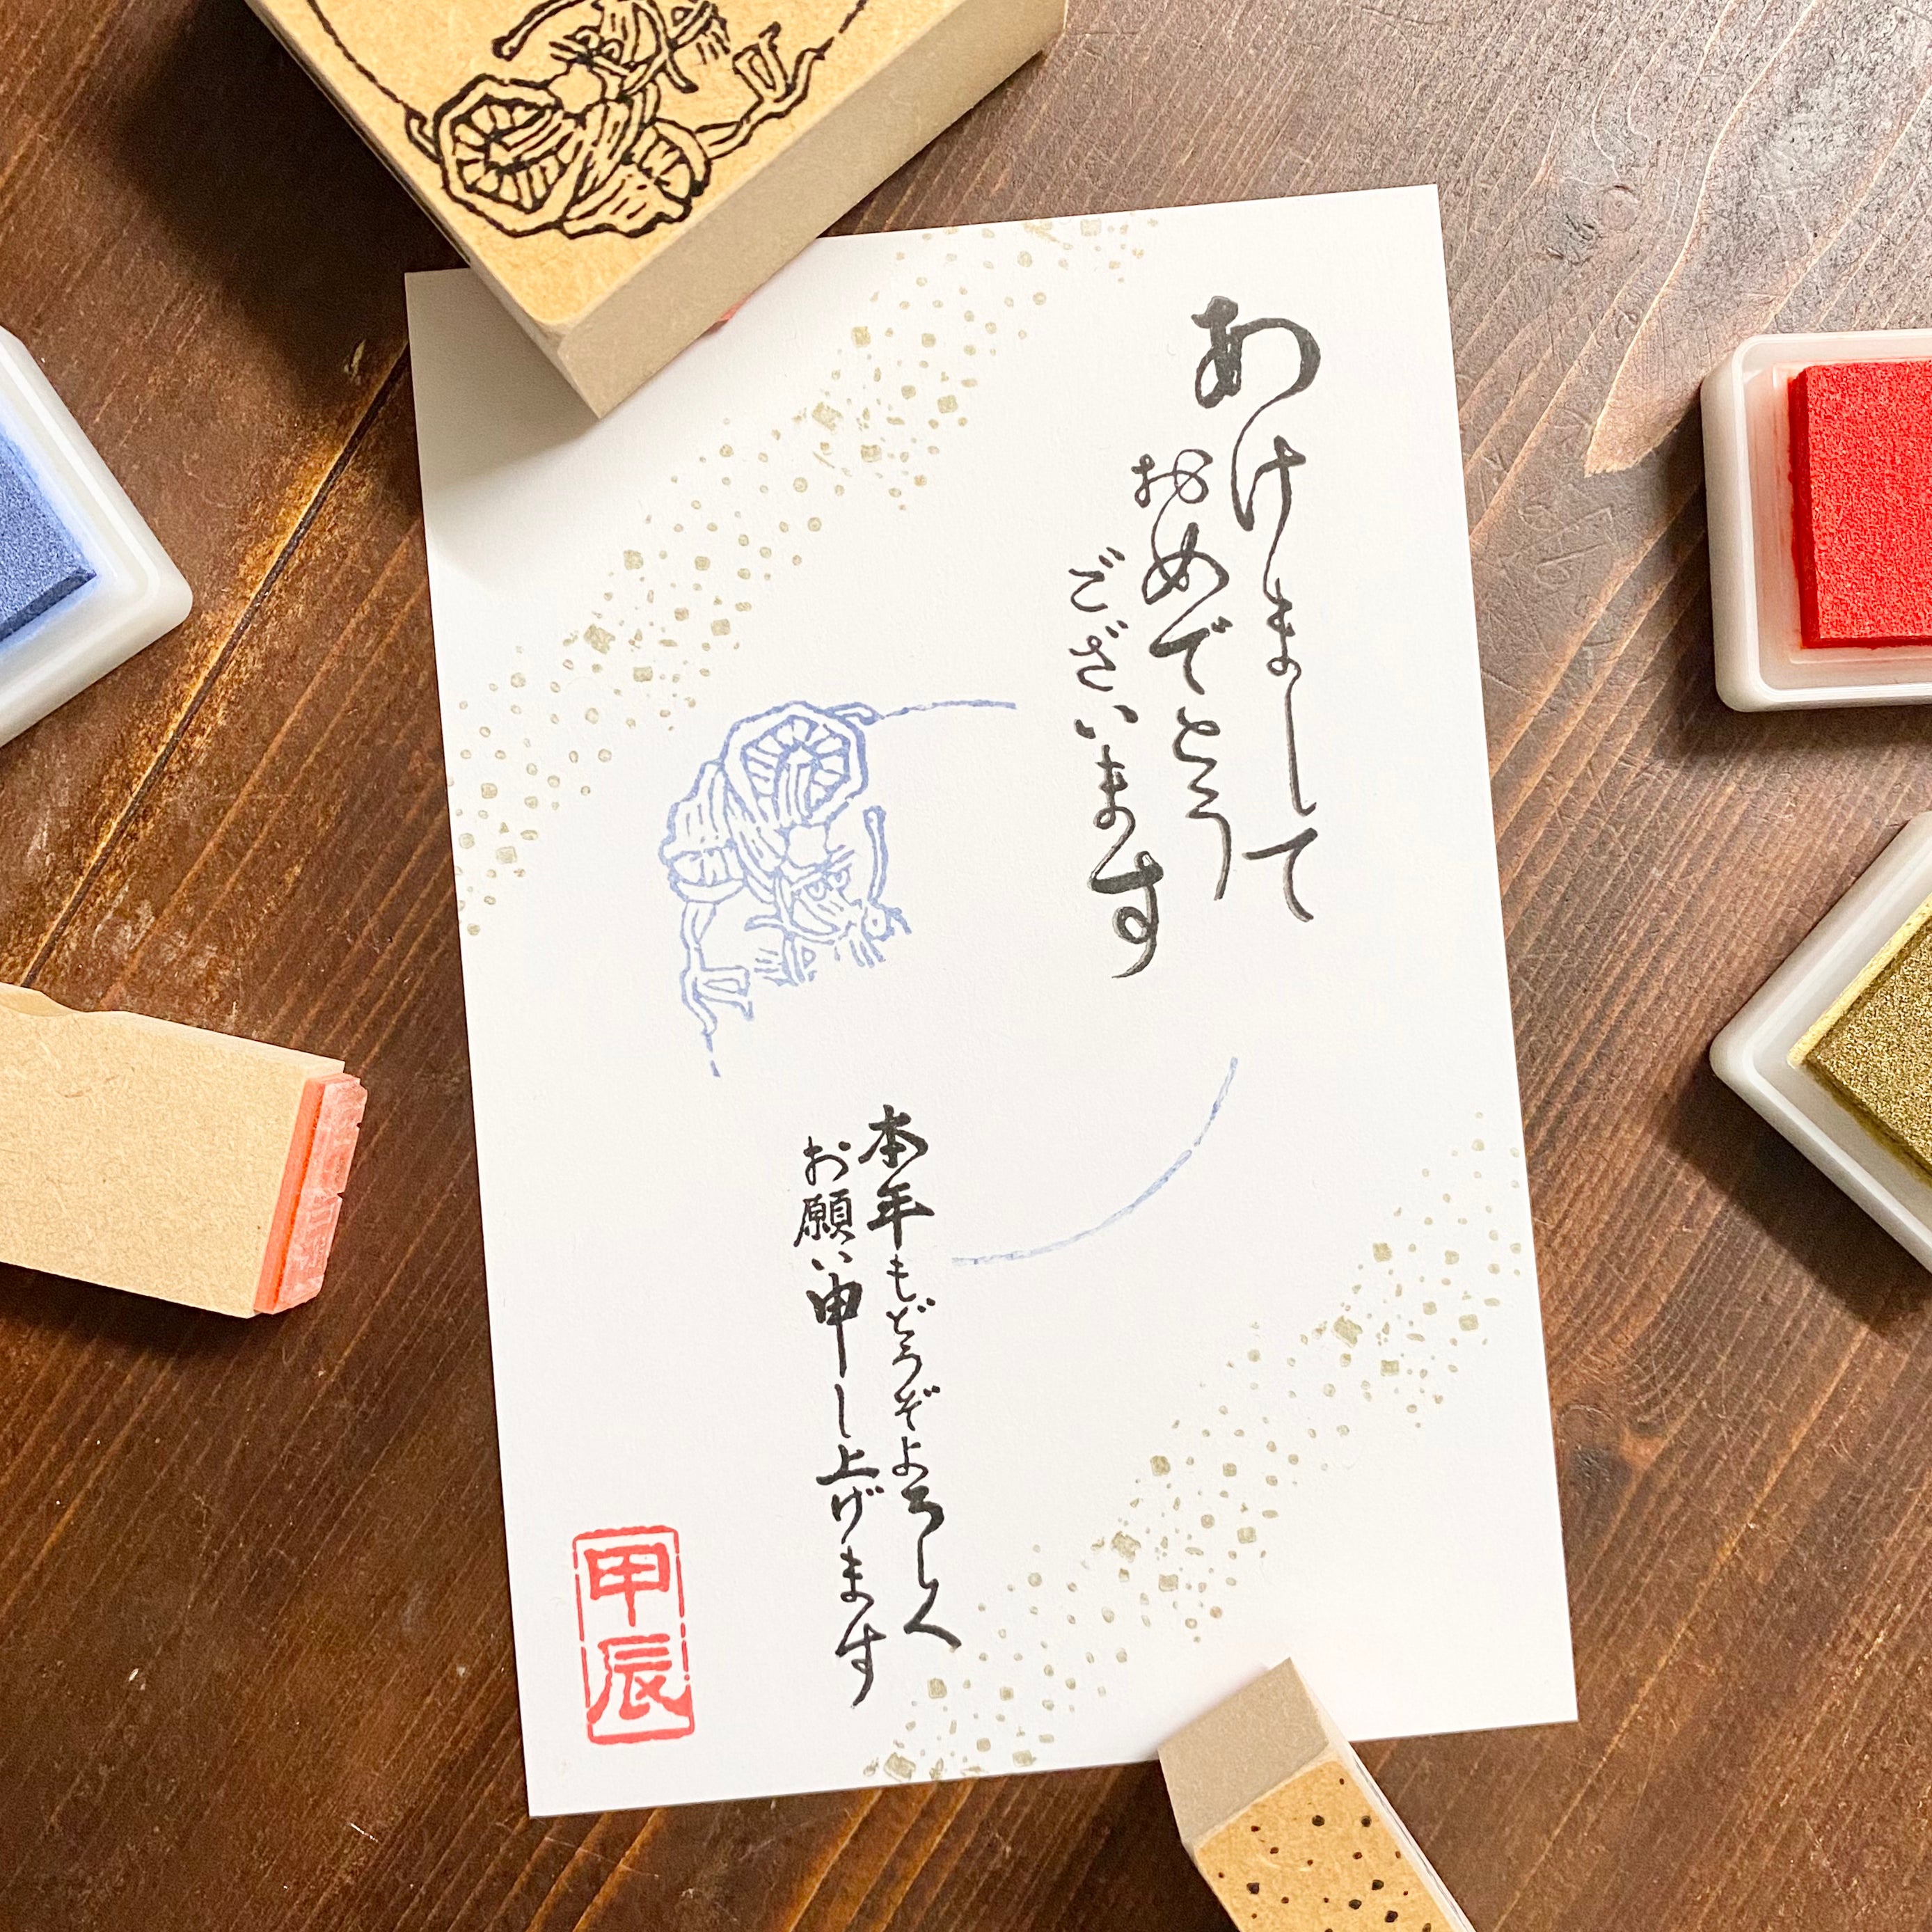 あけまして
おめでとう
ございます
本年もどうぞよろしく
お願い申し上げます
甲辰